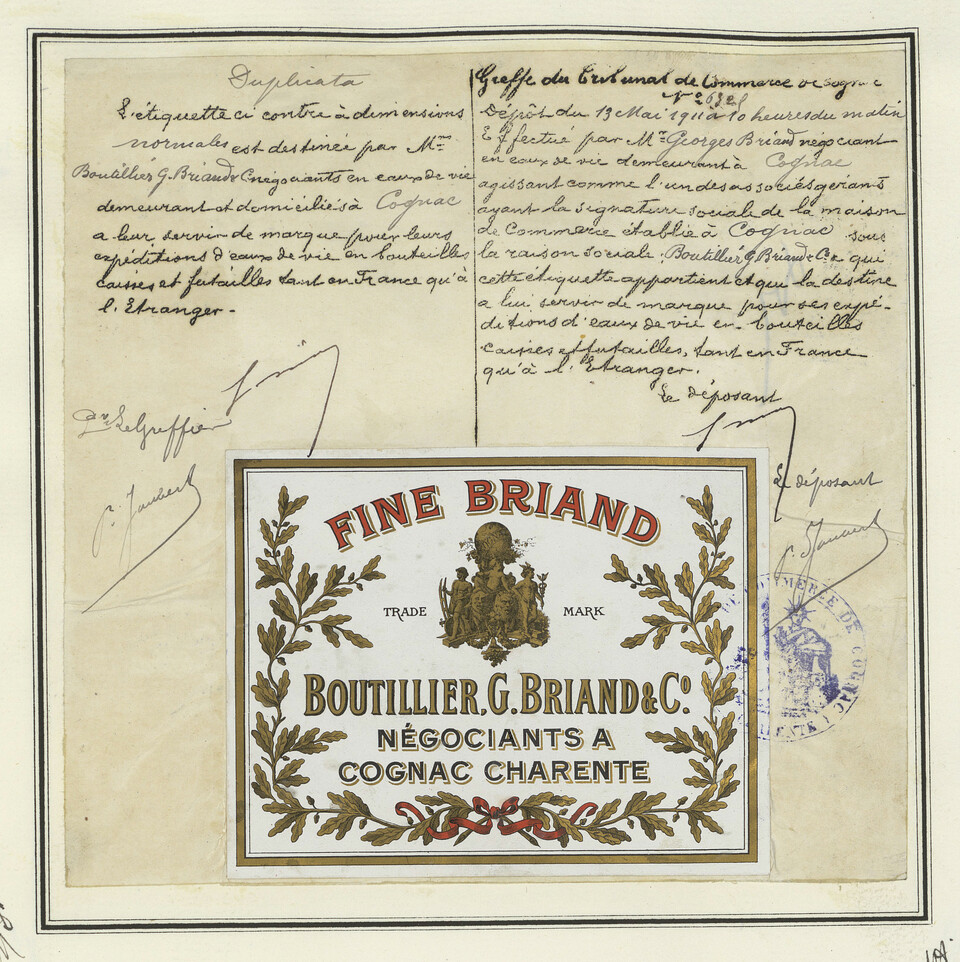 Duplicata
L'étiquette ci contre à dimensions
normales est destinée par Mrs
Boutillier G. Briand & C négociants en eaux de vie
demeurant et domiciliés à Cognac
a leur servir de marque pour leurs
expéditions d'eaux de vie en bouteilles
caisses et futailles tant en France qu'à
l'Etranger.
Pr Le Greffier
Greffe du Tribunal de Commerce de Cognac
Dépôt du 13 Mai 1911 à 10 heures du matin
Effectué par Mr Georges Briand négociant
en eaux de vie demeurant à Cognac
agissant comme l'un des associés gérants
ayant la signature sociale de la maison
de Commerce établie à Cognac sous
la raison sociale. Boutillier G Briand & Cie qui
cette étiquette appartient et qui la destine
a lui servir de marque pour ses expé-
ditions d'eaux de vie en bouteilles
caisses et futailles, tant en France
qu'à l'Etranger.
Le déposant
Le déposant
FINE BRIAND
TRADE MARK
BOUTILLIER, G. BRIAND & Co.
NÉGOCIANTS A
COGNAC CHARENTE
DE COMMERCE DE COGNAC